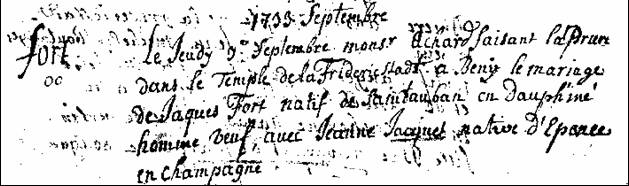 1733 Septembre
fort. Le Jeudy 9.e Septembre mons.r Achard faisant la Prier
dans le Temple de la Friderichstadt a Beny le mariage
de Jaques Fort natif de Saintauban en Dauphiné
homme Veuf, avec Jeanne Jacquet native d'Epance
en Champagne